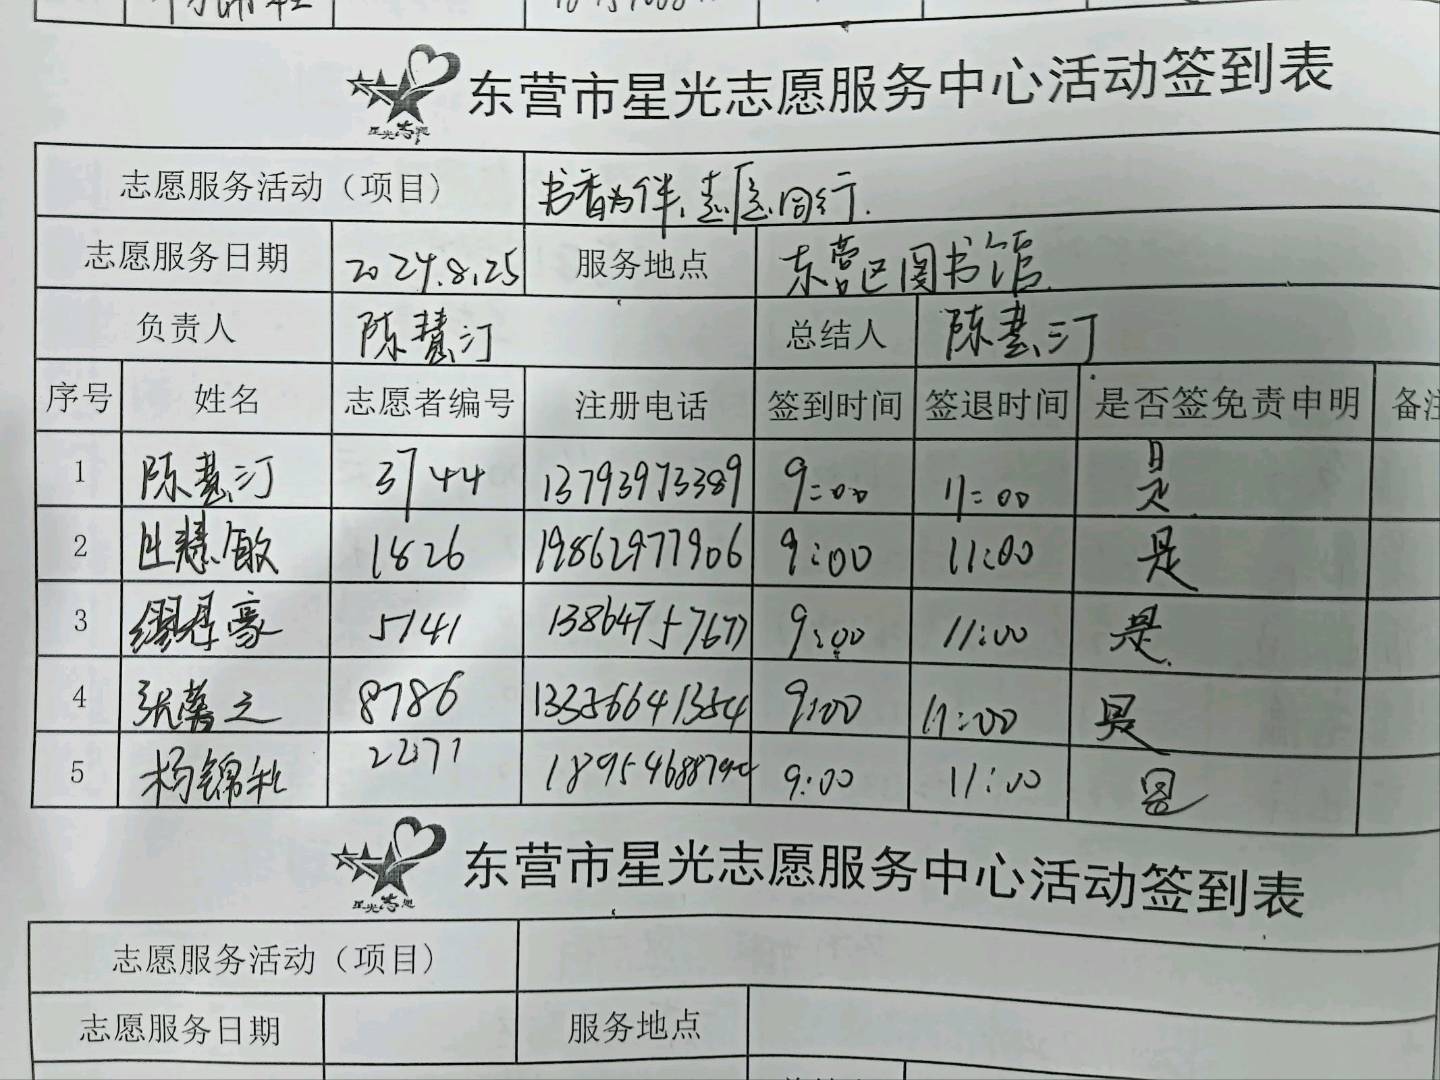 东营市星光志愿服务中心活动签到表
星光志愿
志愿服务活动（项目） 书香为伴、志愿同行.
志愿服务日期 2024.8.25 服务地点 东营区图书馆
负责人 陈慧汀 总结人 陈慧汀
序号 姓名 志愿者编号 注册电话 签到时间 签退时间 是否签免责申明 备注
1 陈慧汀 3744 13793973389 9:00 11:00 是
2 慧敏 1826 19862977906 9:00 11:00 是
3 豪 5141 13864757677 9:00 11:00 是
4 张之 8786 13356641354 9:00 11:00 是
5 杨锦 2271 9:00 11:00 是
东营市星光志愿服务中心活动签到表
星光志愿
志愿服务活动（项目）
志愿服务日期 服务地点